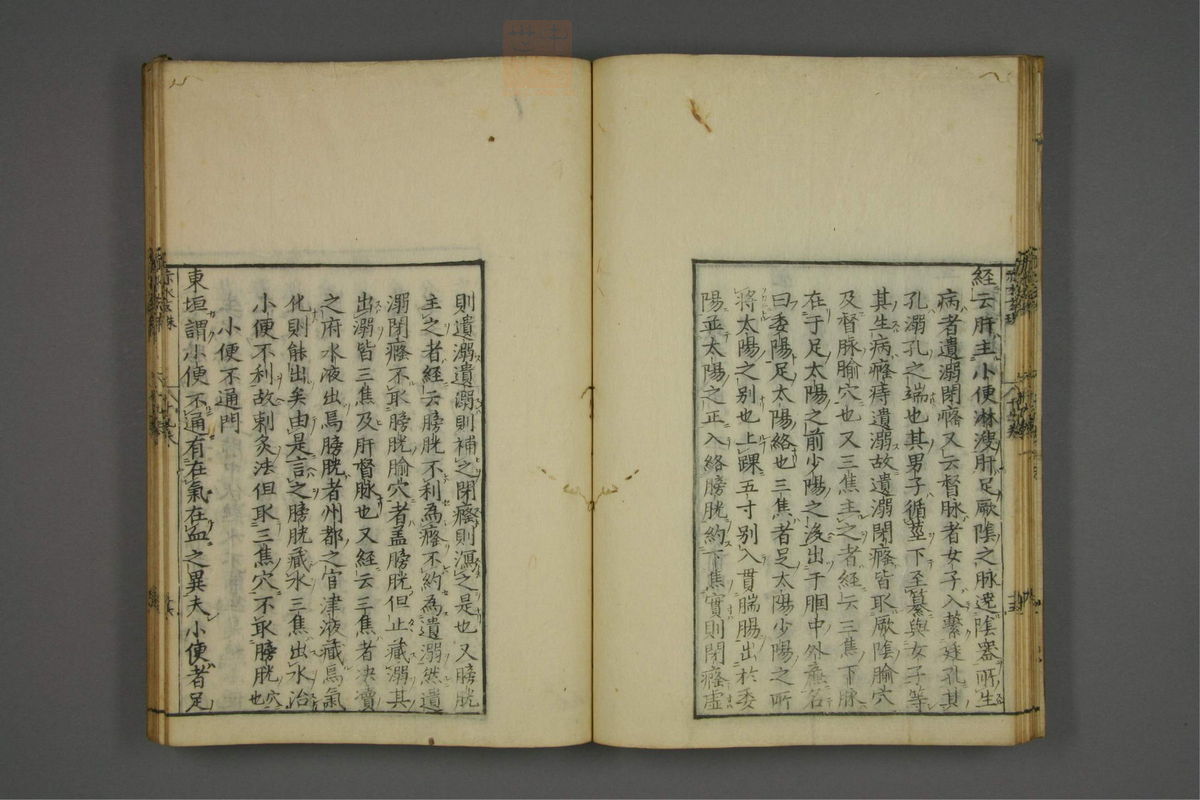 経云肝主小便淋溲肝足厥陰之脉遶陰器所生
病者遺溺閉癃又云督脉者女子入繫廷孔其
孔溺孔之端也其男子循莖下至纂與女子等
其生病癃痔遺溺故遺溺閉癃皆取厥陰腧穴
及督脉腧穴也又三焦主之者經云三焦下脉
在于足太陽之前少陽之後出于膕中外廉名
曰委陽足太陽絡也三焦者足太陽少陽之所
將太陽之別也上踝五寸別入貫腨腸出於委
陽並太陽之正入絡膀胱約下焦實則閉癃虛
則遺溺遺溺則補之閉癃則瀉之是也又膀胱
主之者經云膀胱不利為癃不約為遺溺然遺
溺閉癃不取膀胱腧穴者盖膀胱但止藏溺其
出溺皆三焦及肝督脉也又經云三焦者決瀆
之府水液出焉膀胱者州都之官津液藏焉氣
化則能出矣由是言之膀胱藏水三焦出水治
小便不利故刺灸法但取三焦穴不取膀胱穴也
小便不通門
東垣謂小便不通有在氣在血之異夫小便者足